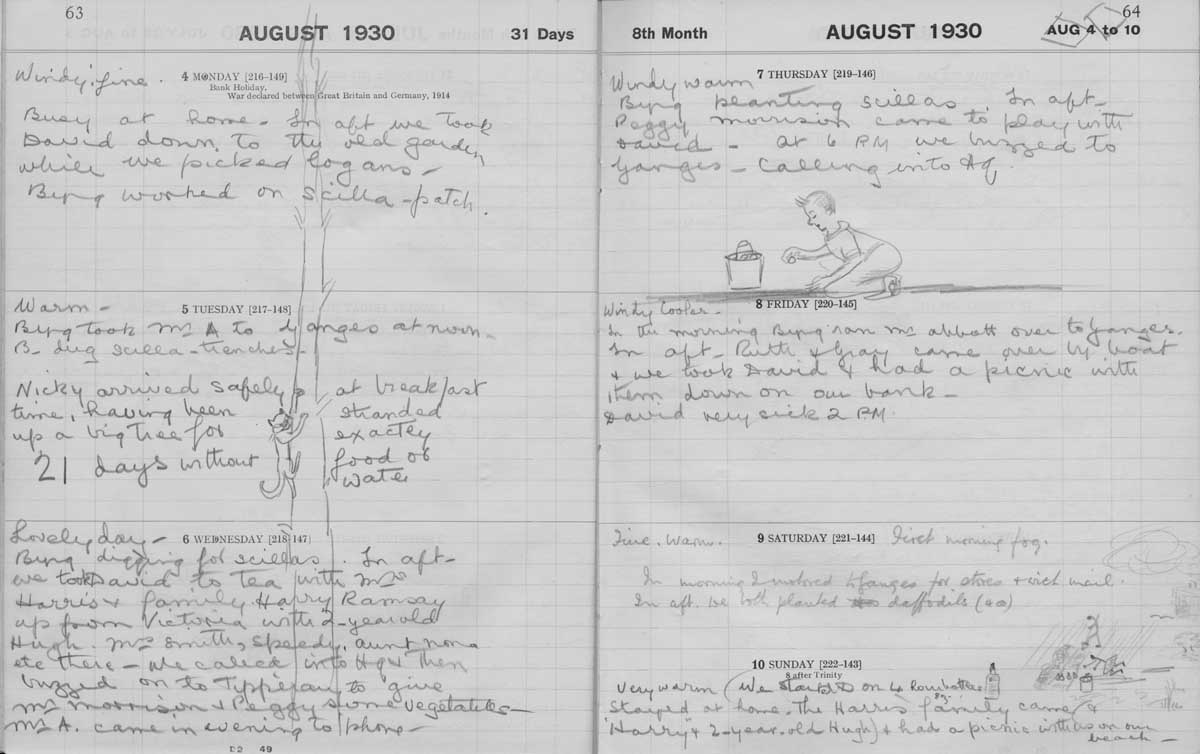 63
AUGUST 1930
31 Days
Windy, fine.
4 MONDAY [216-149]
Bank Holiday.
War declared between Great Britain and Germany, 1914
Busy at home - In aft we took
David down to the old garden
while we picked logans -
Byng worked on scilla-patch.
Warm -
5 TUESDAY [217-148]
Byng took Mr A to Ganges at noon -
B- dug scilla-trenches -
Nicky arrived safely at breakfast
time, having been stranded
up a big tree for exactly
21 days without food or
water
Lovely day -
6 WEDNESDAY [218-147]
Byng digging for scillas. In aft-
we took David to tea with Mrs
Harris & family. Harry Ramsay
up from Victoria with 2-year old
Hugh. Mrs Smith, Speedy, Aunt Nona
etc there - We called into Hq & then
buzzed on to Tippejan to give
Mrs Morrison & Peggy some vegetables -
Mr A. came in evening to phone -
D2 49
8th Month
AUGUST 1930
64
AUG 4 to 10
Windy warm
7 THURSDAY [219-146]
Byng planting scillas. In aft-
Peggy Morrison came to play with
David - at 6 PM we buzzed to
Ganges - calling into Hq.
Windy Cooler -
8 FRIDAY [220-145]
In the morning Byng ran Mr Abbott over to Ganges.
In aft- Ruth & Gray came over by boat
& we took David & had a picnic with
them down on our bank -
David very sick 2 PM.
Fine. Warm.
9 SATURDAY [221-144]
First morning fog.
In morning I motored to Ganges for stores & mail.
In aft. we both planted daffodils (40)
10 SUNDAY [222-143]
8 after Trinity
Very warm (We started on 4 Rom bottles
Stayed at home. The Harris family came &
Harry & 2-year-old Hugh) & had a picnic with us on our
beach -